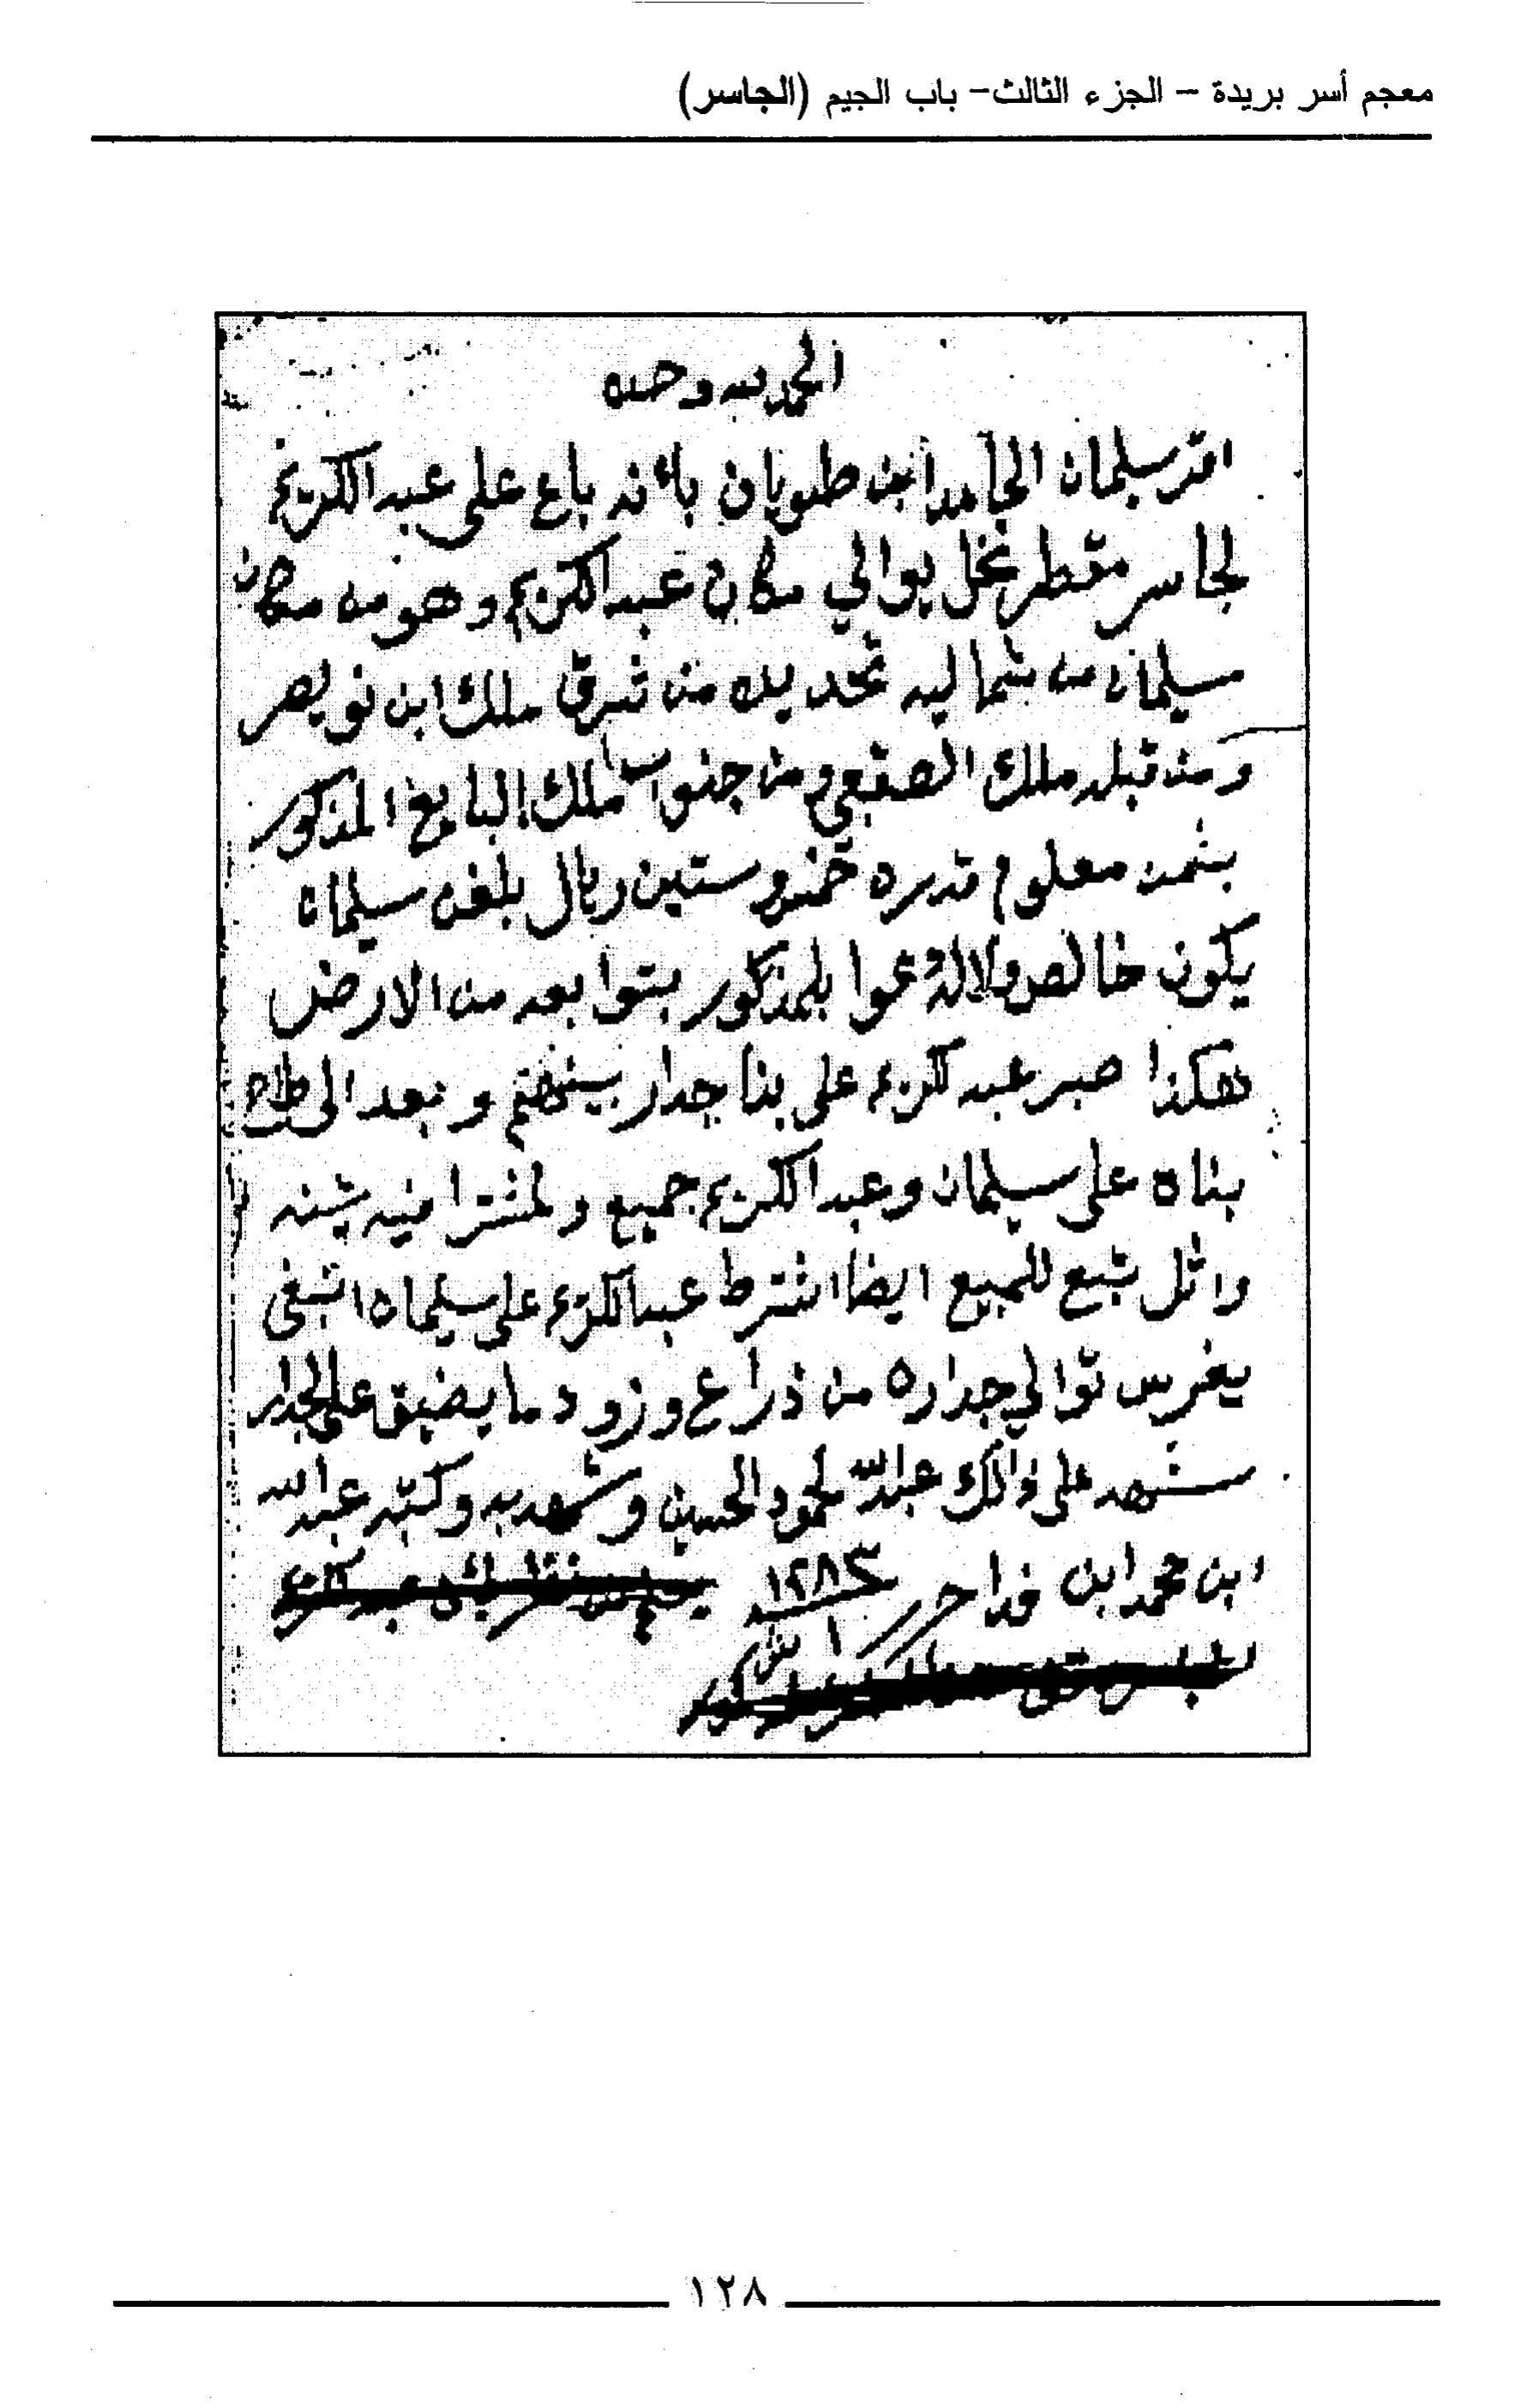 معجم أسر بريدة - الجزء الثالث- باب الجيم (الجاسر)
الحمد لله وحده
اقر سليمان الحامد ابن طويان بأنه باع على عبد الكريم
لجاسر مقطر نخل يوالي مكان عبد الكريم وهو من مكان
سليمان من شماليه تحديده من شرق ملك ابن نويصر
ومن قبله ملك الصقعبي ومن جنوب ملك البايع المذكور
بثمن معلوم قدره خمس وستين ريال بلغن سليمان
يكون خالص ولاله دعوا بلمذكور بتوابعه من الارض
هكذا صبر عبد كريم على بنا جدار بينهم وبعد الى طاح
بناه على سليمان وعبد الكريم جميع ولمشترا فيه
واثل تبع للمبيع ايضا اشترط عبد الكريم على سليمان
يغرس توالي جداره من ذراع وزود ما يضيق على الجدار
شهد على ذالك عبد الله لحمود الحسين وشهد به وكتبه عبد الله
ابن محمد ابن فدا حرر ١ ش ١٢٨٣
١٢٨